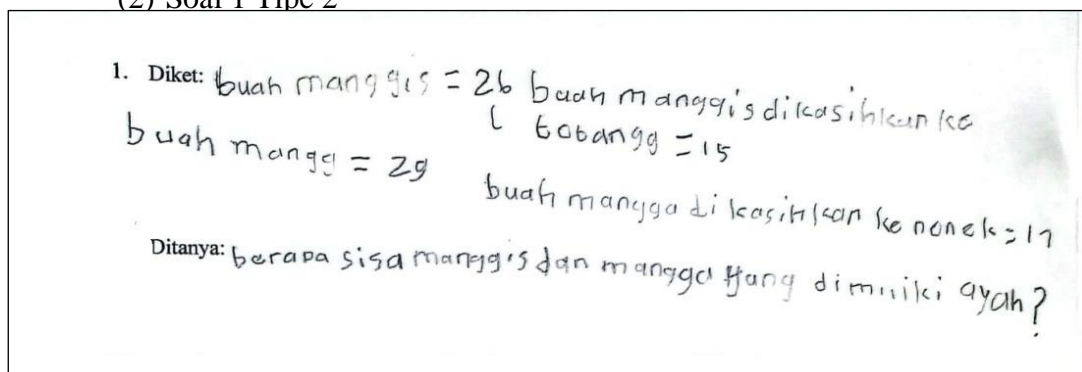 (2) Soal 1 Tipe 2
1. Diket: buah manggis = 26 buah manggis dikasihkan ke
totangg = 15
buah mangg = 29
buah mangga dikasihkan ke nenek = 17
Ditanya: berapa sisa manggis dan mangga yang dimiliki ayah?